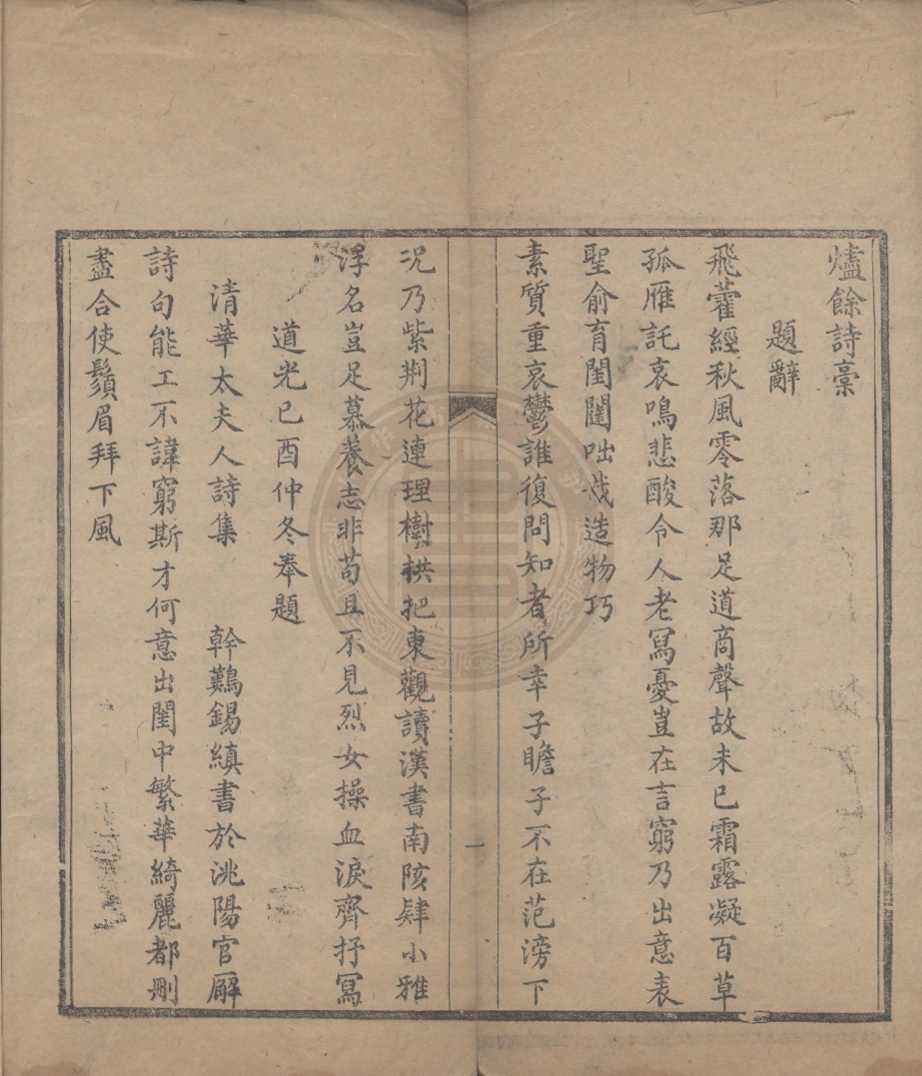 爐餘詩稾
題辭
飛藿經秋風零落那足道商聲故未已霜露凝百草
孤雁託哀鳴悲酸令人老冩憂豈在言窮乃出意表
聖俞育閨闥咄哉造物巧
素質重哀鬱誰復問知者所幸子瞻子不在范滂下
况乃紫荆花連理樹栱把東觀讀漢書南陔肄小雅
浮名豈足慕養志非苟且不見烈女操血淚齊抒冩
道光已酉仲冬奉題
清華太夫人詩集 幹鷬錫縝書於洮陽官廨
詩句能工不諱窮斯才何意出閨中繁華綺麗都刪
盡合使鬚眉拜下風
一